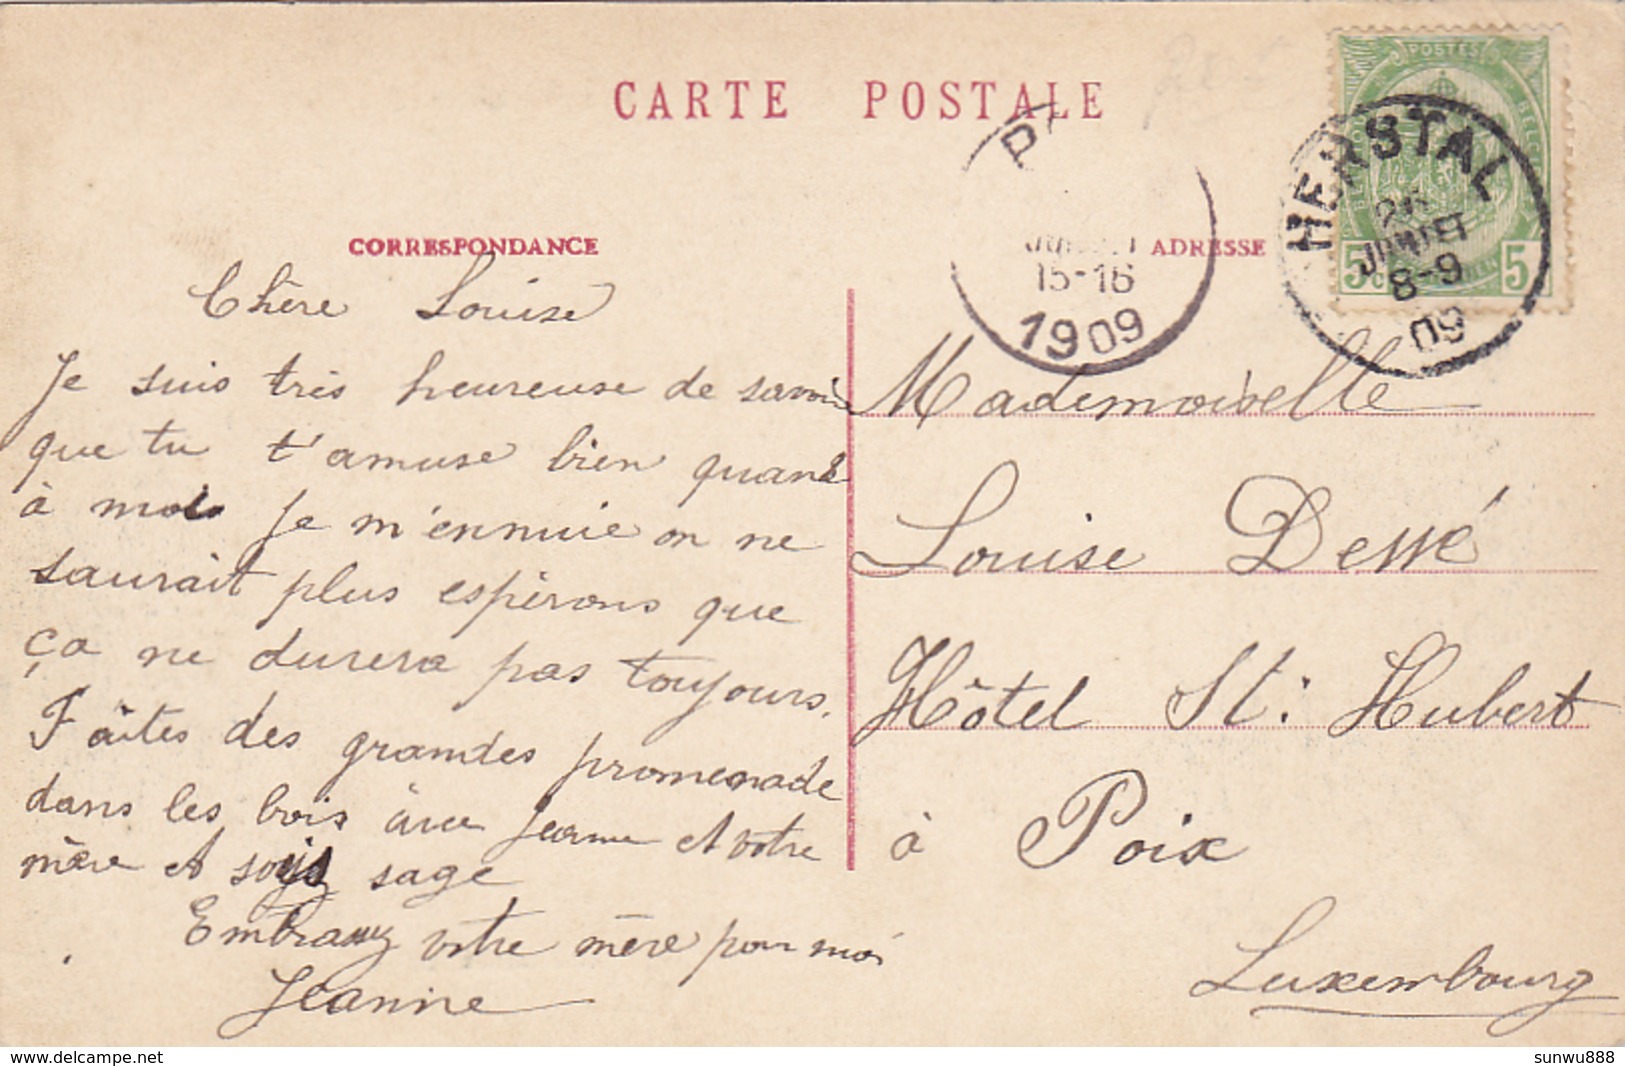 CARTE POSTALE
POSTES
HERSTAL
26
JUILLET
8-9
09
5c 5c
P
15-16
1909
CORRESPONDANCE
ADRESSE
Chère Louise
Je suis très heureuse de savoir
que tu t'amuse bien quand
à moi je m'ennuie on ne
saurait plus espérons que
ça ne durera pas toujours.
Faites des grandes promenade
dans les bois avec Jeanne et votre
mère et soyez sage
Embrassez votre mère pour moi
Jeanne
Mademoiselle
Louise Dessé
Hôtel St: Hubert
à Poix
Luxembourg
sunwu888